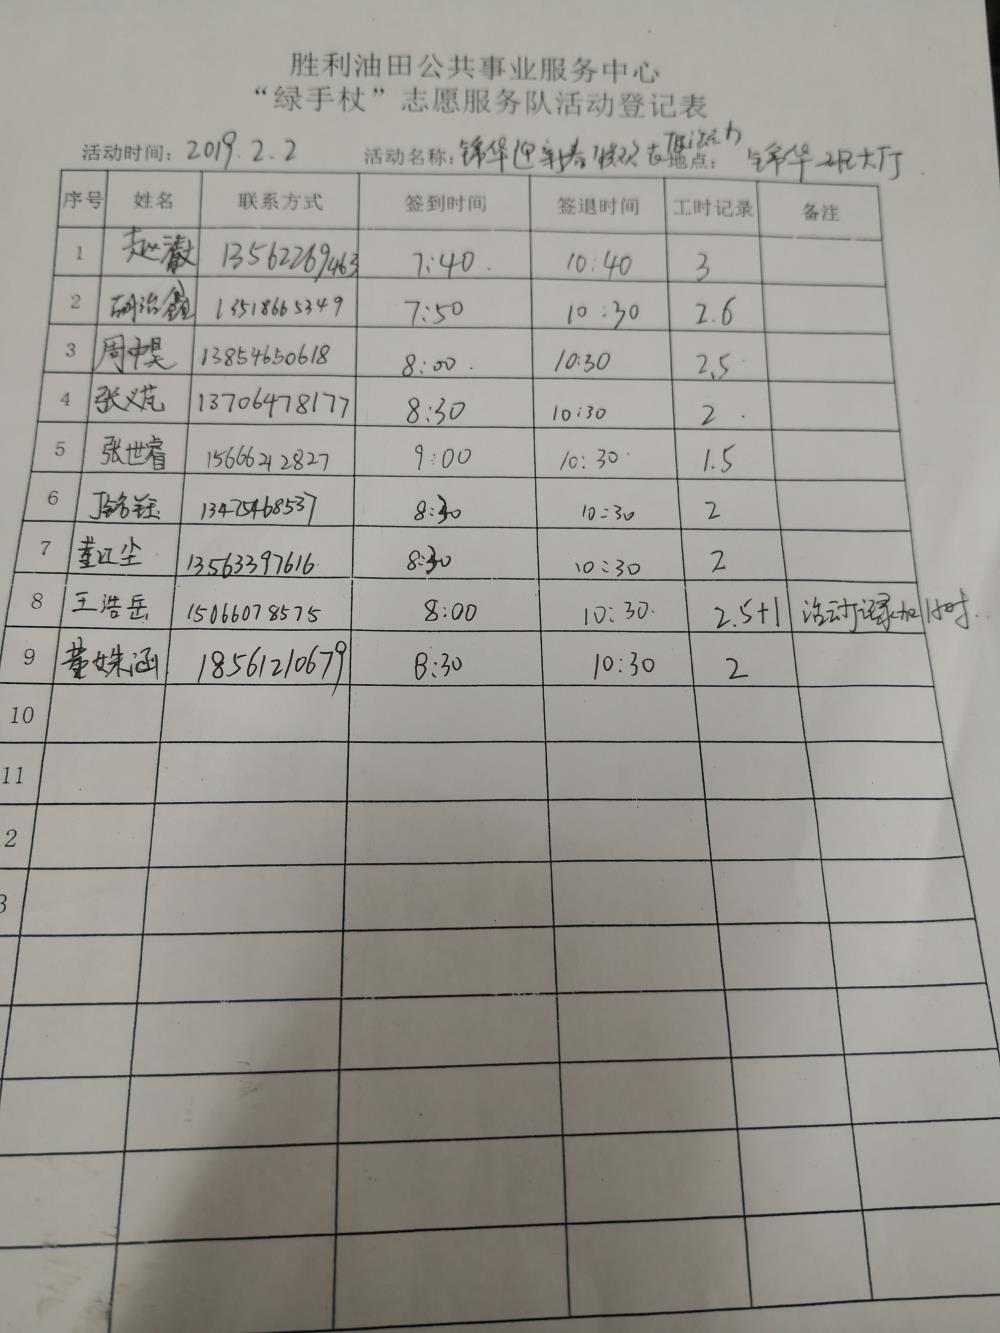 胜利油田公共事业服务中心
“绿手杖”志愿服务队活动登记表
活动时间：2019.2.2 活动名称：锦华迎新春 地点： 锦华 大厅
序号 姓名 联系方式 签到时间 签退时间 工时记录 备注
1 赵 13562269463 7:40 10:40 3
2 胡治鑫 13518665349 7:50 10:30 2.6
3 周中昊 13854650618 8:00 10:30 2.5
4 张义芃 13706478177 8:30 10:30 2
5 张世睿 15666212827 9:00 10:30 1.5
6 13475468537 8:30 10:30 2
7 董江尘 13563397616 8:30 10:30 2
8 王浩岳 15066078575 8:00 10:30 2.5+1 活动记录加1小时
9 董姝涵 18561210679 8:30 10:30 2
10
11
2
3